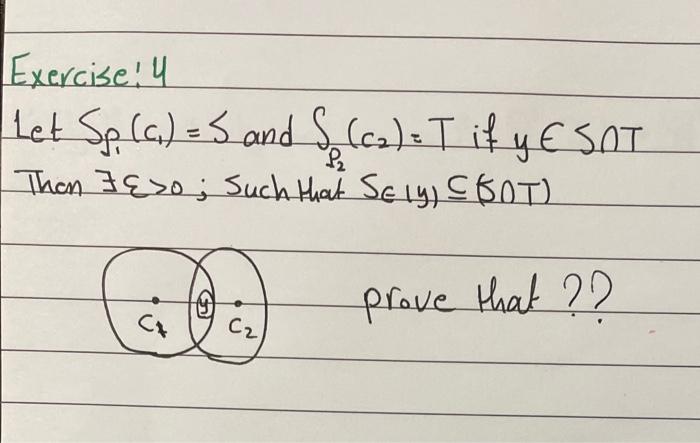 Exercise! 4
Let Sρ₁(C₁) = S and Sρ₂(C₂) = T if y ∈ S∩T
Then ∃ε>0 ; Such that Sε(y) ⊆ (S∩T)
y
C₁ C₂
prove that ??